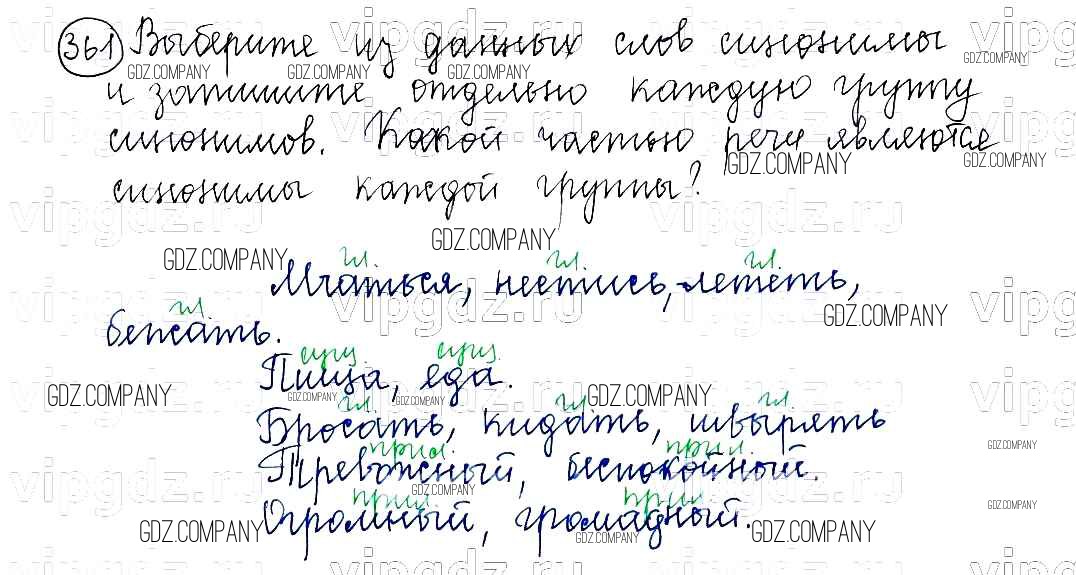 361 Выберите из данных слов синонимы
и запишите отдельно каждую группу
синонимов. Какой частью речи являются
синонимы каждой группы?
гл. гл. гл.
Мчаться, нестись, лететь,
гл.
бежать.
сущ. сущ.
Пища, еда.
гл. гл. гл.
Бросать, кидать, швырять
прил. прил.
Тревожный, беспокойный.
прил. прил.
Огромный, громадный.
vipgdz.ru
GDZ.COMPANY